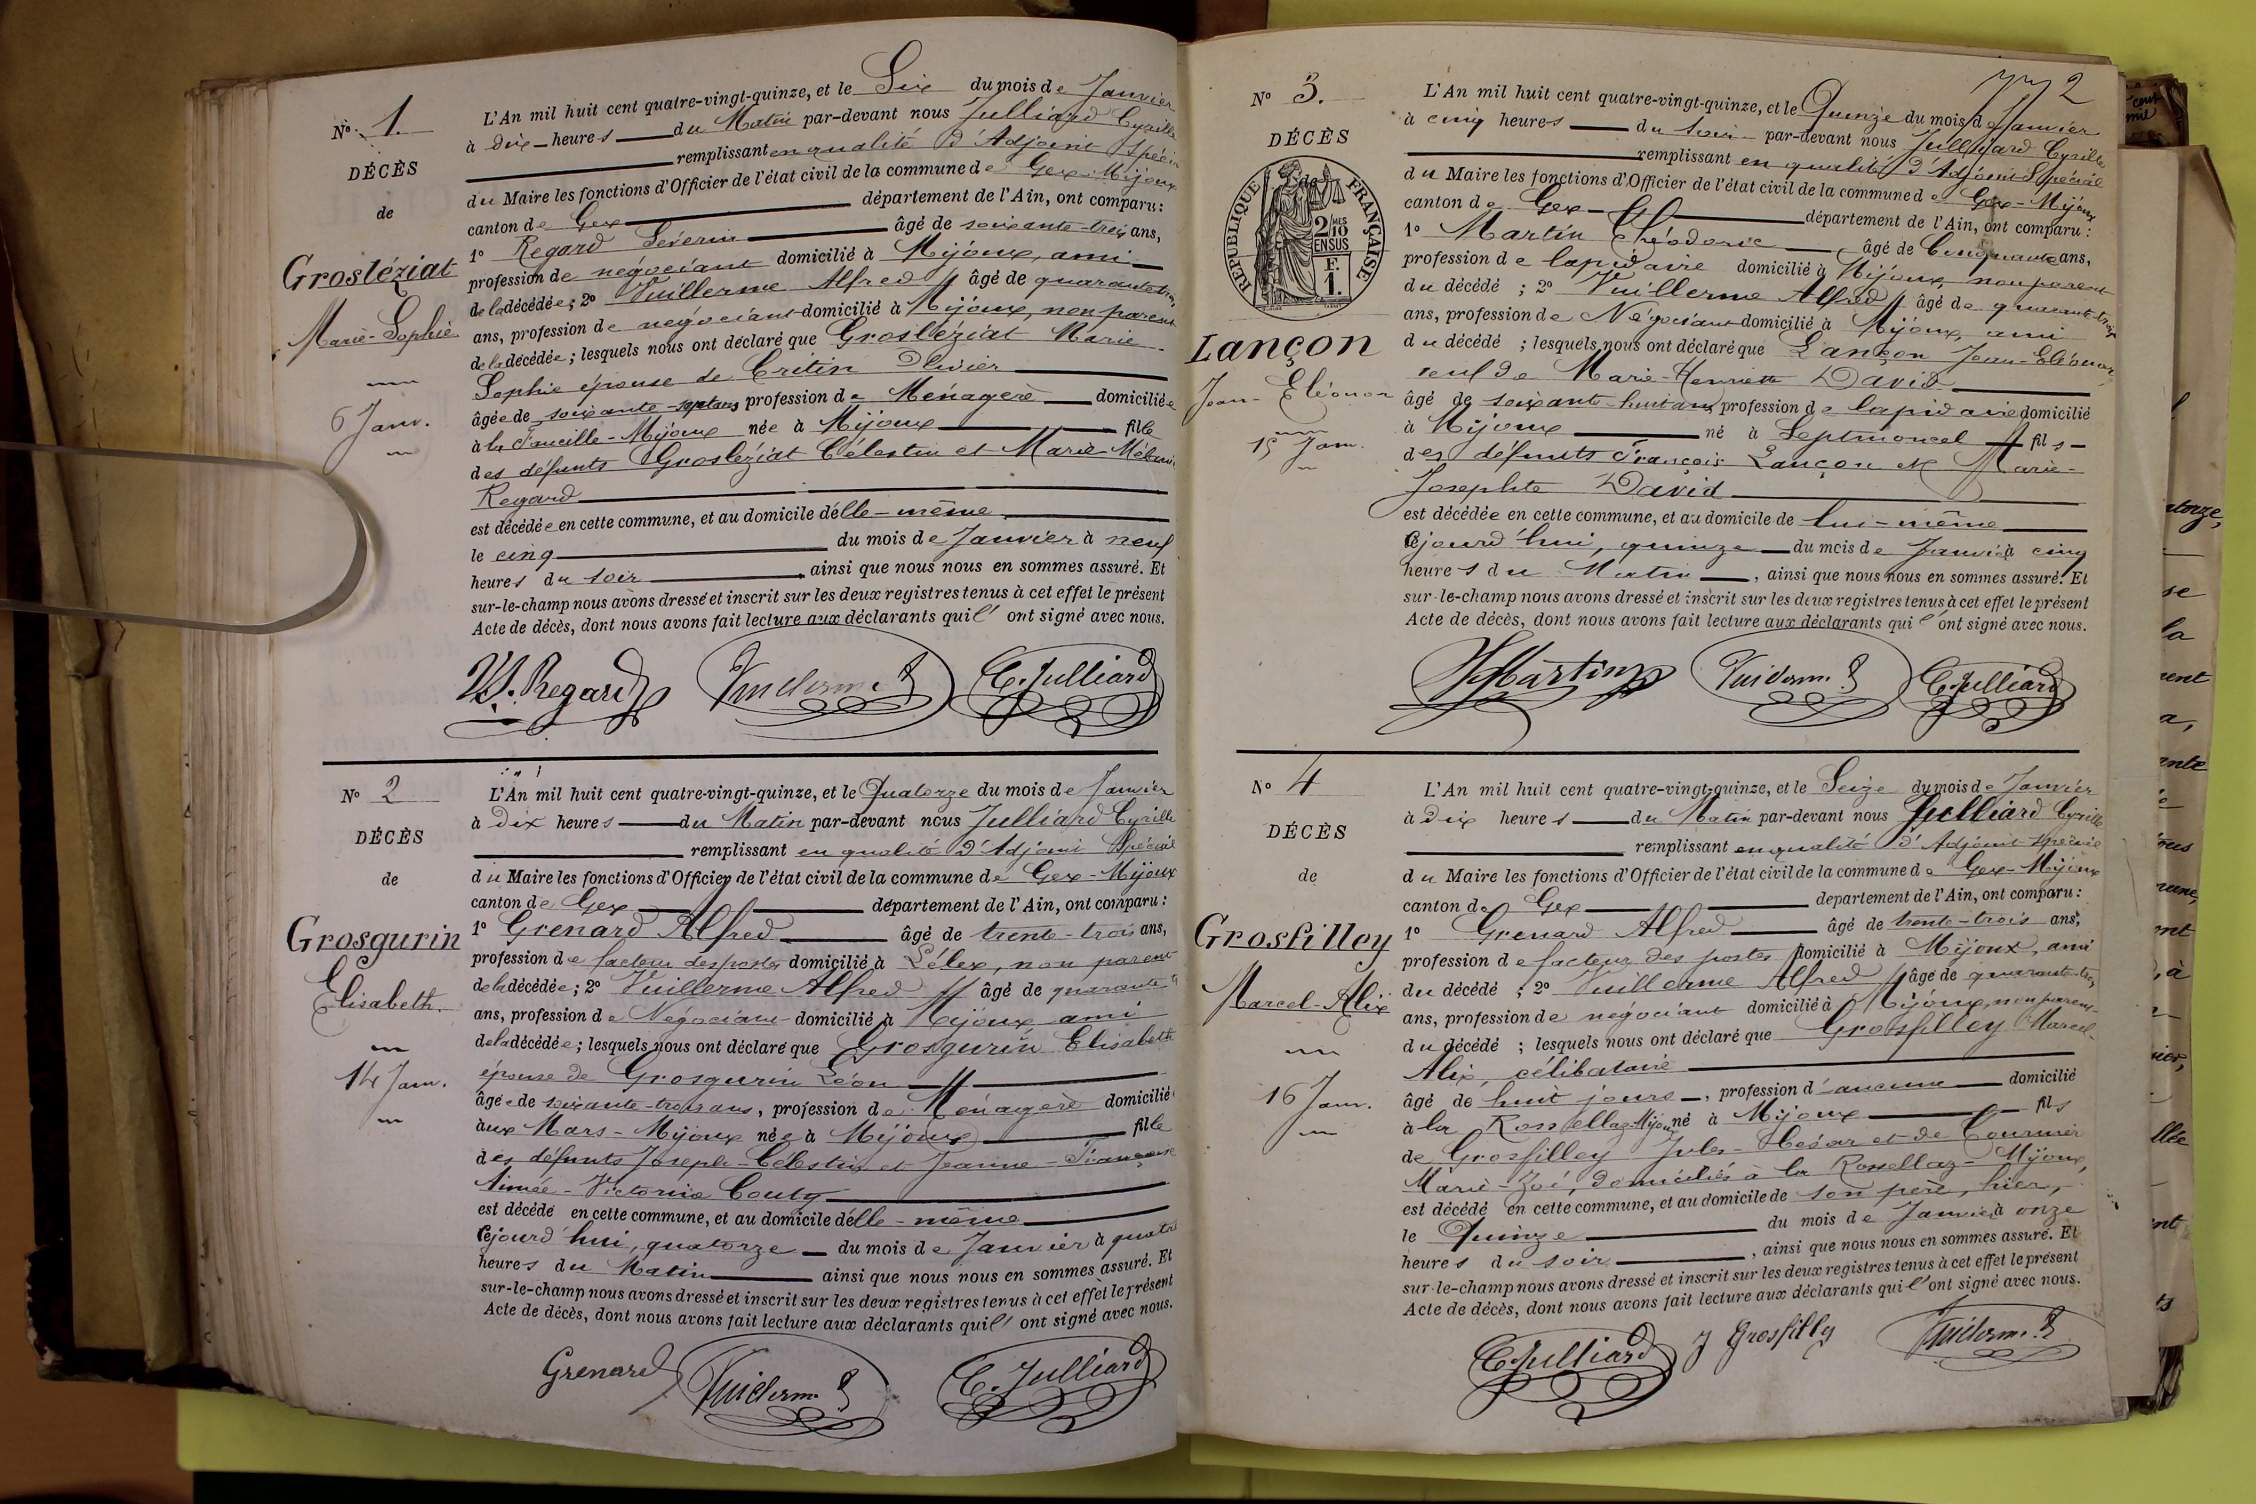 Nº 1.
DÉCÈS
de
Grosléziat
Marie-Sophie
6 Janv.
L'An mil huit cent quatre-vingt-quinze, et le Six du mois de Janvier
à dix heures du Matin par-devant nous Julliard Cyrille
remplissant en qualité d'Adjoint Spécial
du Maire les fonctions d'Officier de l'état civil de la commune de Gex-Mijoux
canton de Gex département de l'Ain, ont comparu:
1º Regard Séverin âgé de soixante-trois ans,
profession de négociant domicilié à Mijoux, ami
de la décédée; 2º Vuillerme Alfred âgé de quarante-trois
ans, profession de négociant domicilié à Mijoux, non parent
de la décédée; lesquels nous ont déclaré que Grosléziat Marie-
Sophie épouse de Critin Olivier
âgée de soixante-sept ans profession de Ménagère domiciliée
à la Faucille-Mijoux née à Mijoux fille
des défunts Grosléziat Célestin et Marie-Mélanie
Regard
est décédée en cette commune, et au domicile d'elle-même
le cinq du mois de Janvier à neuf
heures du soir ainsi que nous nous en sommes assuré. Et
sur-le-champ nous avons dressé et inscrit sur les deux registres tenus à cet effet le présent
Acte de décès, dont nous avons fait lecture aux déclarants qui l'ont signé avec nous.
Regard Vuillerme C. Julliard
Nº 2
DÉCÈS
de
Grosgurin
Elisabeth.
14 Janv.
L'An mil huit cent quatre-vingt-quinze, et le Quatorze du mois de Janvier
à dix heures du Matin par-devant nous Julliard Cyrille
remplissant en qualité d'Adjoint Spécial
du Maire les fonctions d'Officier de l'état civil de la commune de Gex-Mijoux
canton de Gex département de l'Ain, ont comparu:
1º Grenard Alfred âgé de trente-trois ans,
profession de facteur des postes domicilié à Lélex, non parent
de la décédée; 2º Vuillerme Alfred âgé de quarante
ans, profession de Négociant domicilié à Mijoux ami
de la décédée; lesquels nous ont déclaré que Grosgurin Elisabeth
épouse de Grosgurin Léon
âgée de soixante-trois ans, profession de Ménagère domicilié
aux Mars-Mijoux née à Mijoux fille
des défunts Joseph-Célestin et Jeanne-Françoise
Aimée-Victorine Couty
est décédé en cette commune, et au domicile d'elle-même
cejourd'hui, quatorze du mois de Janvier à quatre
heures du Matin ainsi que nous nous en sommes assuré. Et
sur-le-champ nous avons dressé et inscrit sur les deux registres tenus à cet effet le présent
Acte de décès, dont nous avons fait lecture aux déclarants qui l'ont signé avec nous.
Grenard Vuillerme C. Julliard
2
Nº 3.
DÉCÈS
de
RÉPUBLIQUE FRANÇAISE
2/10
EN SUS
F.
1.
Lançon
Jean-Eléonor
15 Janv.
L'An mil huit cent quatre-vingt-quinze, et le Quinze du mois de Janvier
à cinq heures du soir par-devant nous Julliard Cyrille
remplissant en qualité d'Adjoint Spécial
du Maire les fonctions d'Officier de l'état civil de la commune de Gex-Mijoux
canton de Gex département de l'Ain, ont comparu:
1º Martin Théodoric âgé de Cinquante ans,
profession de lapidaire domicilié à Mijoux, non parent
du décédé; 2º Vuillerme Alfred âgé de quarante-trois
ans, profession de Négociant domicilié à Mijoux, ami
du décédé; lesquels nous ont déclaré que Lançon Jean-Eléonor,
veuf de Marie-Henriette David
âgé de soixante-huit ans profession de lapidaire domicilié
à Mijoux né à Septmoncel fils
des défunts François Lançon et Marie-
Josephte David
est décédée en cette commune, et au domicile de lui-même
cejourd'hui, quinze du mois de Janvier à cinq
heures du Matin, ainsi que nous nous en sommes assuré. Et
sur-le-champ nous avons dressé et inscrit sur les deux registres tenus à cet effet le présent
Acte de décès, dont nous avons fait lecture aux déclarants qui l'ont signé avec nous.
Martin Vuillerme C. Julliard
Nº 4
DÉCÈS
de
Grosfilley
Marcel-Alix
16 Janv.
L'An mil huit cent quatre-vingt-quinze, et le Seize du mois de Janvier
à dix heures du Matin par-devant nous Julliard Cyrille
remplissant en qualité d'Adjoint Spécial
du Maire les fonctions d'Officier de l'état civil de la commune de Gex-Mijoux
canton de Gex département de l'Ain, ont comparu:
1º Grenard Alfred âgé de trente-trois ans,
profession de facteur des postes domicilié à Mijoux, ami
du décédé; 2º Vuillerme Alfred âgé de quarante-trois
ans, profession de négociant domicilié à Mijoux, non parent
du décédé; lesquels nous ont déclaré que Grosfilley Marcel-
Alix, célibataire
âgé de huit jours, profession d'aucune domicilié
à la Rossellaz-Mijoux né à Mijoux fils
de Grosfilley Jules-César et de Tournier
Marie-Zoé, domiciliés à la Rossellaz-Mijoux,
est décédé en cette commune, et au domicile de son père, hier,
le Quinze du mois de Janvier à onze
heures du soir, ainsi que nous nous en sommes assuré. Et
sur-le-champ nous avons dressé et inscrit sur les deux registres tenus à cet effet le présent
Acte de décès, dont nous avons fait lecture aux déclarants qui l'ont signé avec nous.
C. Julliard J Grosfilly Vuillerme